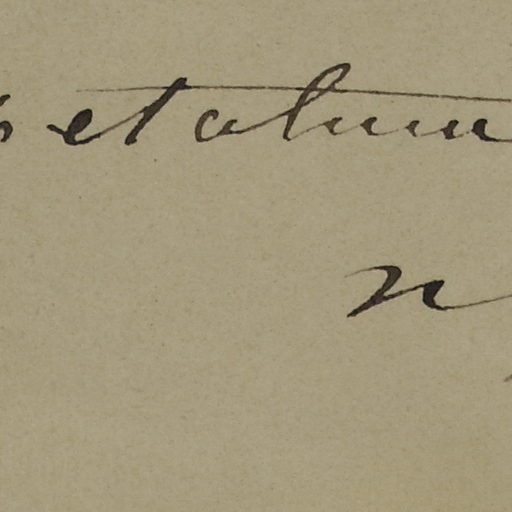 etalum
n